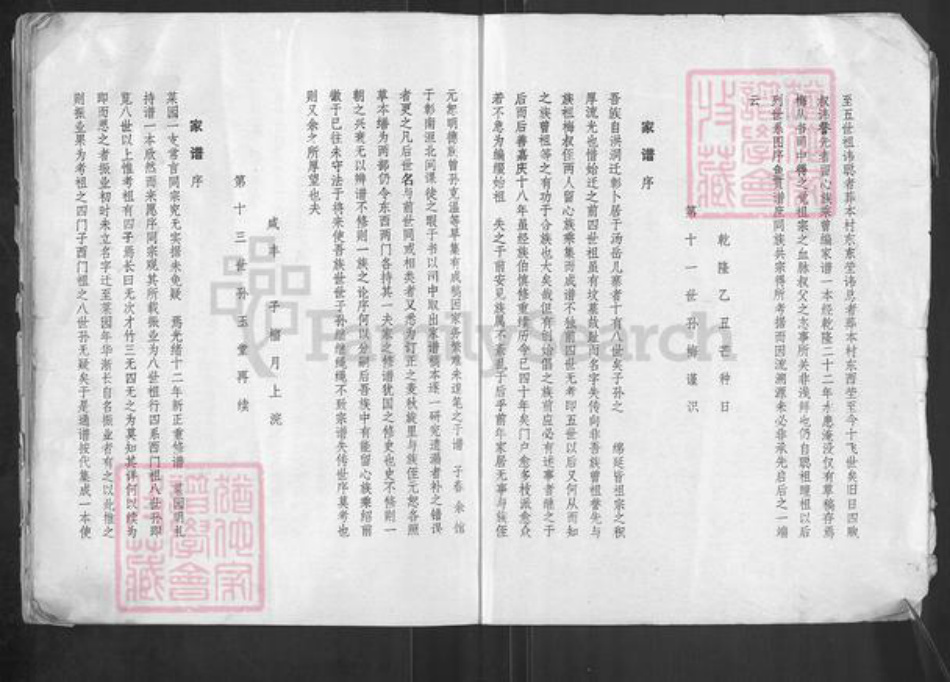 至五世祖讳聪者葬本村东东茔讳总者葬本村东西茔至今十飞世矣旧日四畛
叔讳誉先者留心族乘曾编家谱一本经乾隆二十二年水患淹没仅有草稿存焉
梅从书笥中得之觉祖宗之血脉叔父之志事所关非浅拜也仍自聪祖瞳祖以后
列世系图序鱼贯谱庶同族共宗得所考据而因流溯源未必非承先启后之一端
云
乾隆乙丑芒种日
第十一世孙梅谨识
家谱序
吾族自洪洞迁彰卜居于汤岳儿寨者十有八世矣子孙之 绵延皆祖宗之积
厚流光也惜始迁之前四世祖虽有坟墓故址而名字失传向非吾族曾祖誉先与
族祖梅叔侄两人留心族乘集而成谱不独前四世无考即五世以后又何从而知
之族曾祖等之有功于合族也大矣哉但有创始倡之族前应必有述事者继之于
后而后善嘉庆十八年虽经族伯慎修重续历今已四十年矣门户愈多枝派愈众
若不急为编缀始祖 失之于前安见族属不紊乱于后乎前年家居无事与族侄
元恕明德族曾孙克温等草集有成稿因家务繁难未遑笔之于谱 予春 余馆
于彰南洹北间课徒之暇于书以司中取出家谱稿本逐一研究遗漏者补之错误
者更之凡后世名与前世同或相类者又悉为订正之麦秋旋里与族侄元恕各照
草本缮为两部仍令东西两门各持其一夫家之修谱犹国之修史也史不修则一
朝之兴衰无以辨谱不修则一族之论序何以分嗣后吾族中有能留心族乘绍前
徽于已往未守法于将来使吾族世世子孙继继绳绳不致宗谱失传世序莫考也
则又余之所厚望也夫
咸丰 子榴月上浣
第十三世孙玉堂再续
家谱序
菜园一支常言同宗究无实据未免疑 焉光绪十二年新正重修谱 菜园明礼
持谱一本欣然而来愿序同宗观其所载振业为八世祖行四系西门祖八世孙即
览八世以上惟考祖有四子焉长曰无次才竹三无四无之为莫知其详何以续为
即而思之者振业初时未立名字迁至菜园年华渐长自名振业者有之以此推之
则振业果为考祖之四门子西门祖之八世孙无疑矣于是通谱按代集成一本使
FamilySearch